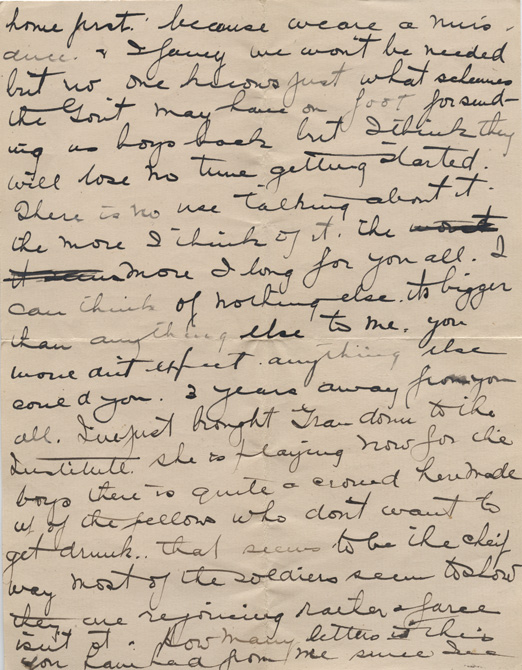 home first. because we are a nuis-
ance. & I fancy we won't be needed
but no one knows just what schemes
the Gov't may have on foot for send-
ing us boys back but I think they
will lose no time getting started.
There is no use talking about it.
the more I think of it. the worst
it seems more I long for you all. I
can think of nothing else. its bigger
than anything else to me. you
would'nt expect anything else
could you. 3 years away from you
all. I've just brought Gran down to the
Institute. she is playing now for the
boys there is quite a crowd here made
up of the fellows who don't want to
get drunk.. that seems to be the cheif
way most of the soldiers seem to show
they are rejoicing rather a farce
isn't it. How many letters is this
you have had from me since I've